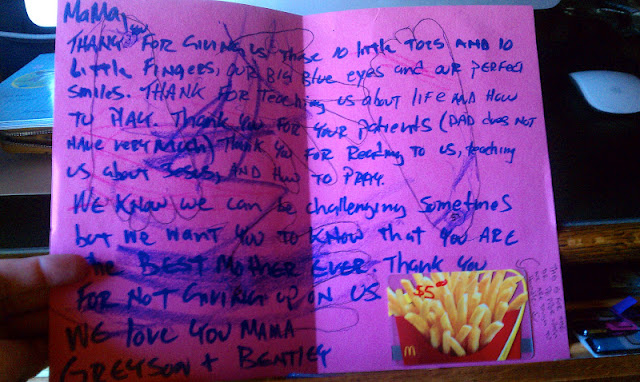 MaMa,
THANK FOR GIVING US those 10 little TOES AND 10
Little FINGERS, OUR BIG Blue eyes and OUR PERFECT
Smiles. THANK FOR Teaching us about life AND How
TO PLAY. Thank You FOR YOUR patients (DAD does NOT
HAVE VERY MUCH) THANK YOU FOR Reading TO US, teaching
US about Jesus, AND How TO PRAY.
WE KNOW we can be challenging Sometimes
but we WANT YOU TO KNOW that YOU ARE
the BEST MOTHER EVER. Thank You
FOR NOT GIVING UP ON US.
WE love YOU MAMA
GREYSON + BENTLEY
$5